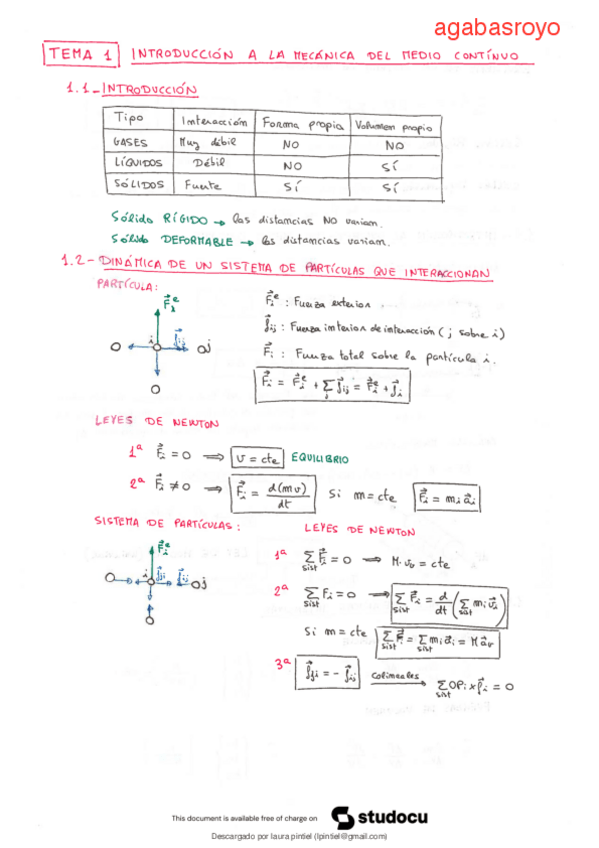 agabasroyo
TEMA 1 INTRODUCCIÓN A LA MECÁNICA DEL MEDIO CONTÍNUO
1.1 - INTRODUCCIÓN
Tipo Interacción Forma propia Volumen propio
GASES Muy débil NO NO
LÍQUIDOS Débil NO SÍ
SÓLIDOS Fuerte SÍ SÍ
Sólido RÍGIDO → las distancias NO varian.
Sólido DEFORMABLE → las distancias varian.
1.2 - DINÁMICA DE UN SISTEMA DE PARTÍCULAS QUE INTERACCIONAN
PARTÍCULA:
F⃗ᵢᵉ
i f⃗ᵢⱼ j
F⃗ᵢᵉ : Fuerza exterior.
f⃗ᵢⱼ : Fuerza interior de interacción (j sobre i)
F⃗ᵢ : Fuerza total sobre la partícula i.
F⃗ᵢ = F⃗ᵢᵉ + Σⱼ f⃗ᵢⱼ = F⃗ᵢᵉ + f⃗ᵢ
LEYES DE NEWTON
1ª F⃗ᵢ = 0 ⟹ v = cte EQUILIBRIO
2ª F⃗ᵢ ≠ 0 ⟹ F⃗ᵢ = d(mv)/dt Si m = cte F⃗ᵢ = mᵢ a⃗ᵢ
SISTEMA DE PARTÍCULAS:
F⃗ᵢᵉ
i f⃗ᵢⱼ f⃗ⱼᵢ j
LEYES DE NEWTON
1ª Σ sist F⃗ᵢ = 0 ⟹ = cte
2ª Σ sist Fᵢ = 0 ⟹ Σ sist F⃗ᵢ = d/dt (Σ sist mᵢ v⃗ᵢ)
Si m = cte Σ sist F⃗ᵢ = Σ sist mᵢ a⃗ᵢ =
3ª f⃗ⱼᵢ = - f⃗ᵢⱼ Colineales → Σ sist OPᵢ × f⃗ᵢ = 0
This document is available free of charge on studocu
Descargado por laura pintiel (lpintiel@gmail.com)